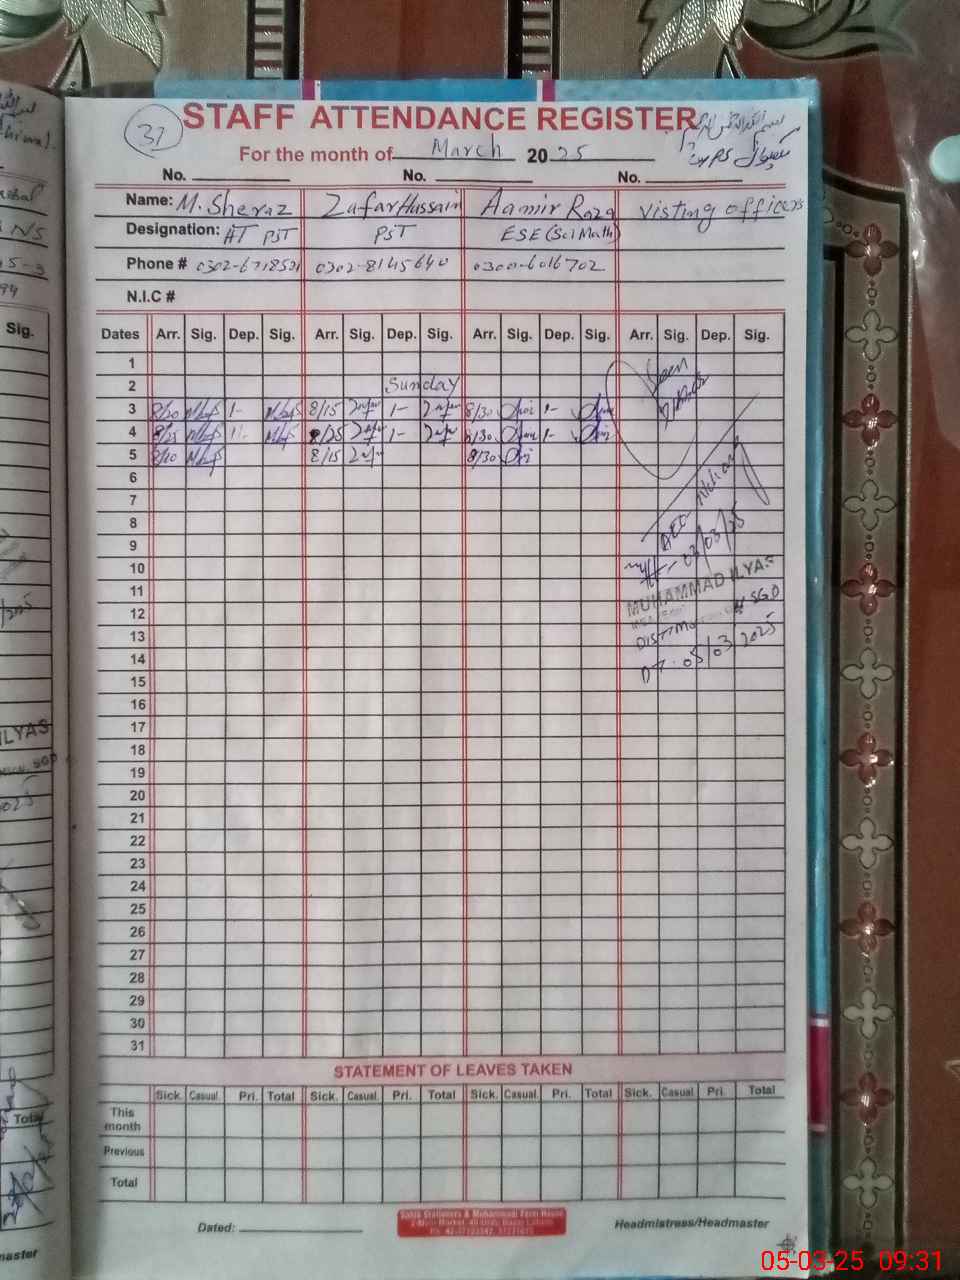 37
STAFF ATTENDANCE REGISTER
For the month of March 2025
No. No. No.
Name: M. Sheraz Zafar Hussain Aamir Raza Visting officers
Designation: AT PST PST ESE (Sci Math)
Phone # 0302-6718521 0302-8145640 0300-6016702
N.I.C #
Dates Arr. Sig. Dep. Sig. Arr. Sig. Dep. Sig. Arr. Sig. Dep. Sig. Arr. Sig. Dep. Sig.
1
2 Sunday
3 8/20 1- 8/15 1- 8/30 1-
4 8/25 8/25 1- 8/30 1-
5 8/20 8/15 8/30
6
7
8
9
10
11
12
13
14
15
16
17
18
19
20
21
22
23
24
25
26
27
28
29
30
31
Seen
AEO
03/03/25
MUHAMMAD ILYAS
SGD
DT. 05/03/2025
STATEMENT OF LEAVES TAKEN
Sick. Casual. Pri. Total Sick. Casual. Pri. Total Sick. Casual. Pri. Total Sick. Casual. Pri. Total
This month
Previous
Total
Dated: Headmistress/Headmaster
Sig.
ILYAS
Total
master
05-03-25 09:31